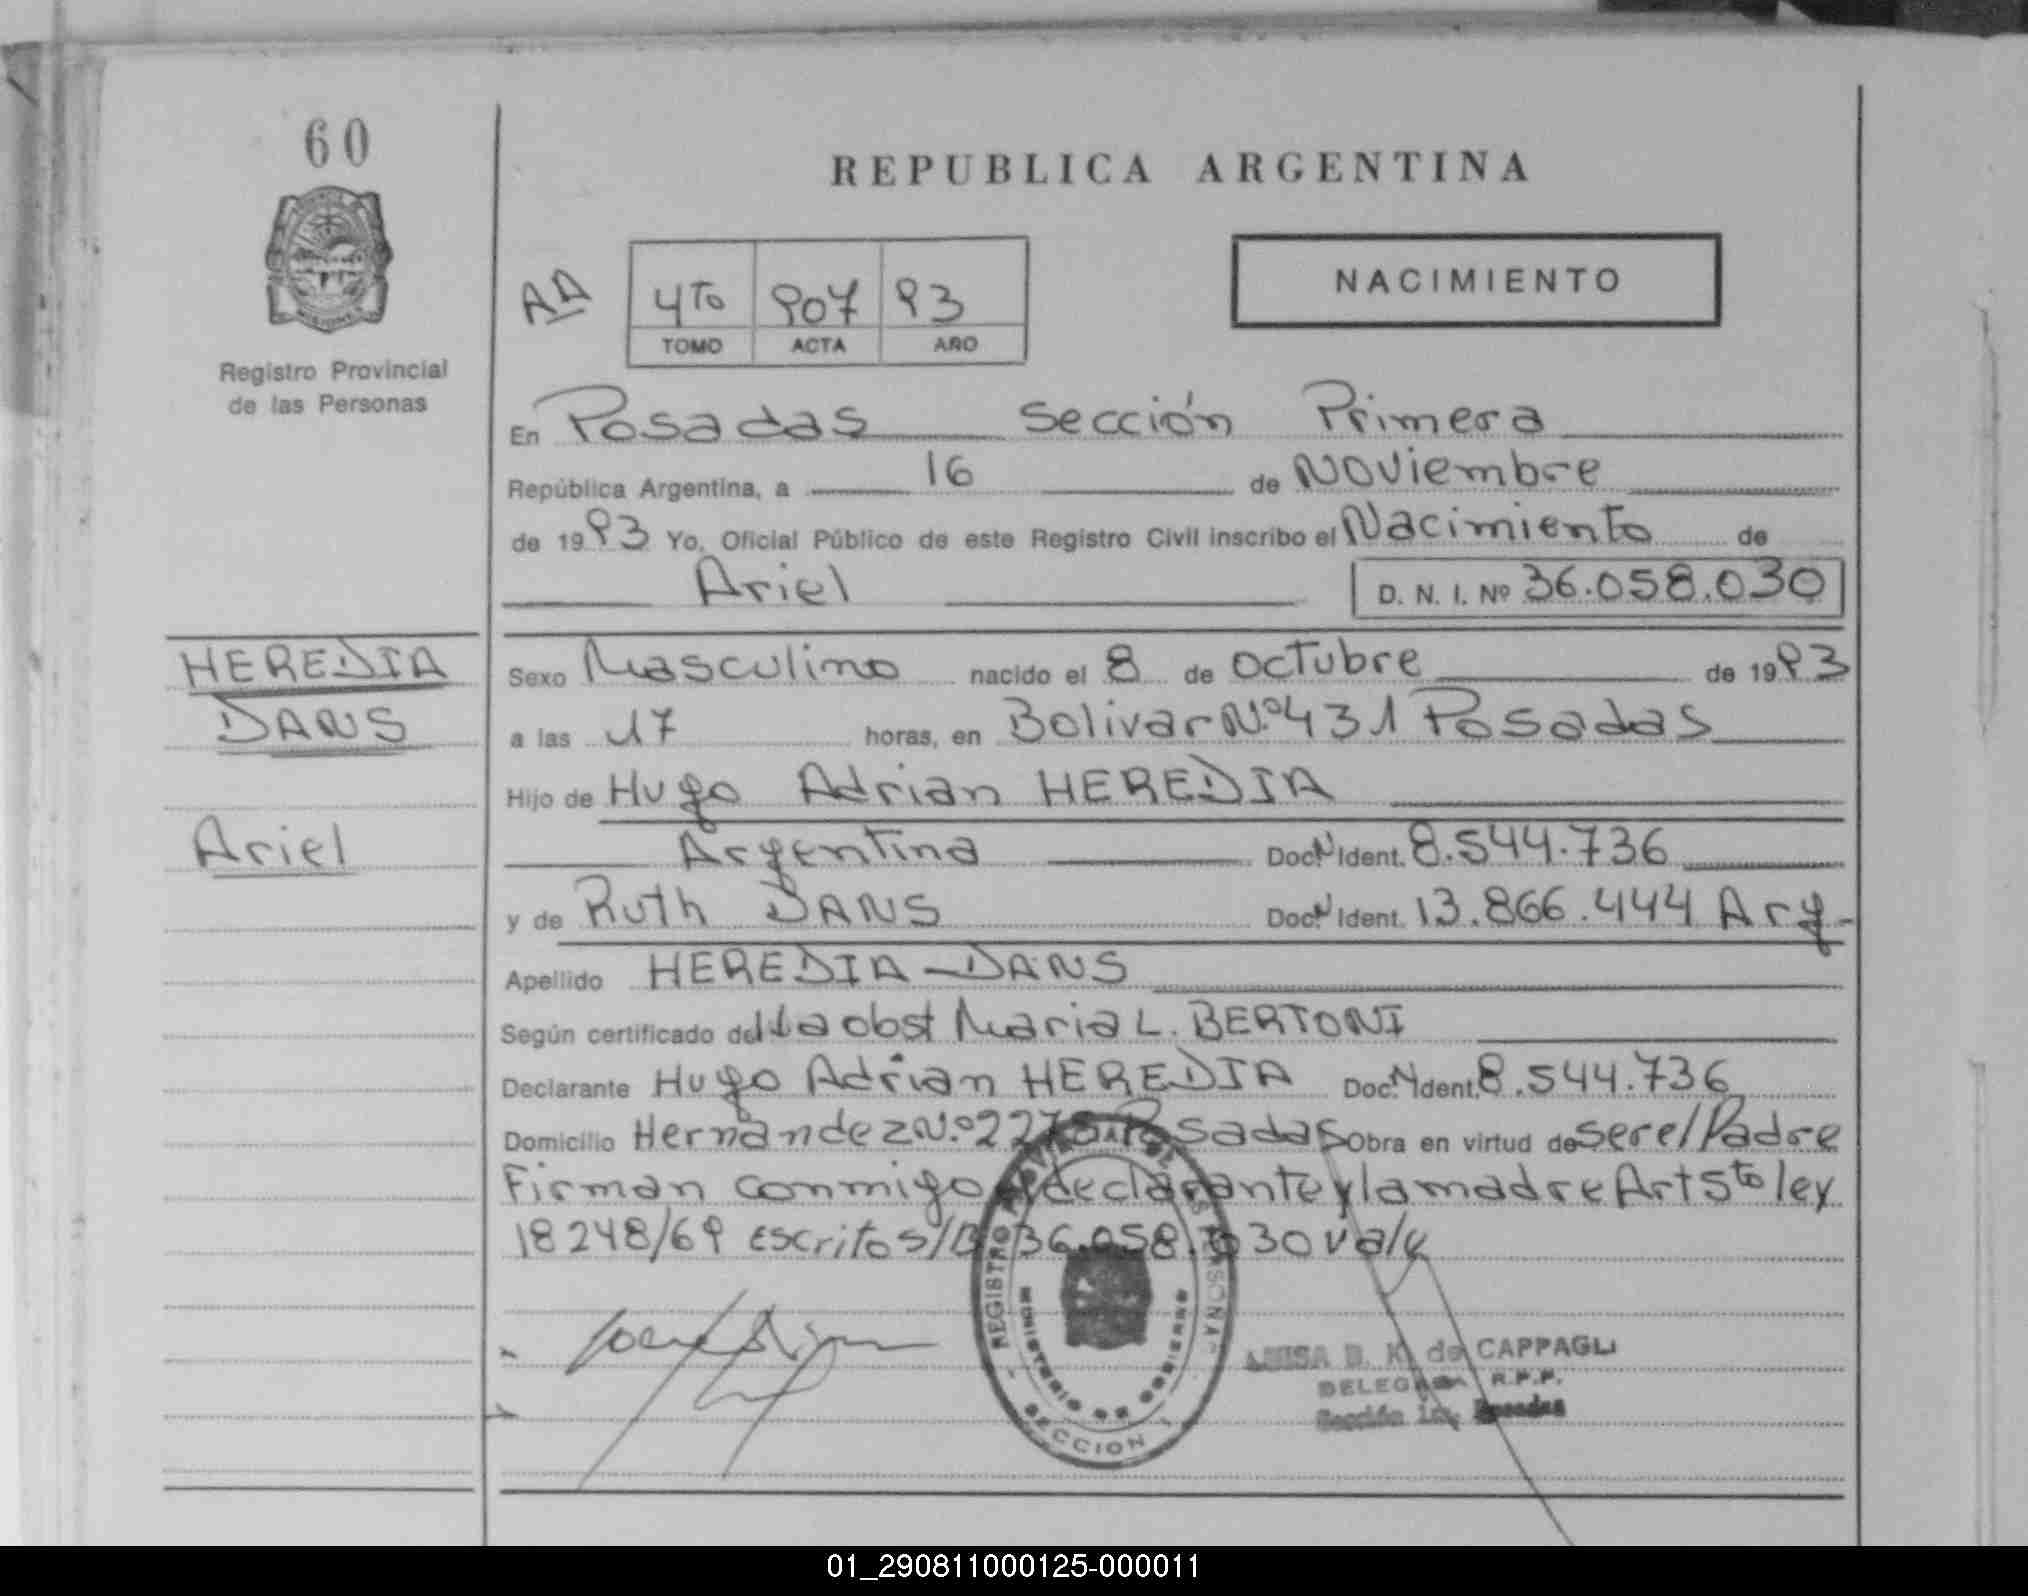 60
REPUBLICA ARGENTINA
NACIMIENTO
AA
4To 907 93
TOMO ACTA AÑO
Registro Provincial
de las Personas
En Posadas Sección Primera
República Argentina, a 16 de Noviembre
de 1993 Yo, Oficial Público de este Registro Civil inscribo el Nacimiento de
Ariel D. N. I. Nº 36.058.030
HEREDIA
DANS
Ariel
Sexo Masculino nacido el 8 de octubre de 1993
a las 17 horas, en Bolivar N.º 431 Posadas
Hijo de Hugo Adrian HEREDIA
Argentina Doc. N Ident. 8.544.736
y de Ruth DANS Doc. N Ident. 13.866.444 Arg-
Apellido HEREDIA-DANS
Según certificado de la obst Maria L. BERTONI
Declarante Hugo Adrian HEREDIA Doc. N Ident. 8.544.736
Domicilio Hernandez N.º Posadas Obra en virtud de ser el Padre
Firman conmigo declarante y la madre Art 5to ley
18248/69 escrito s/B 36.058.030 va/
REGISTRO PROVINCIAL DE LAS PERSONAS
MINISTERIO DE GOBIERNO
SECCION 1
LUISA B. K. de CAPPAGLI
DELEGADA R.P.P.
Sección 1a, Posadas
01_290811000125-000011